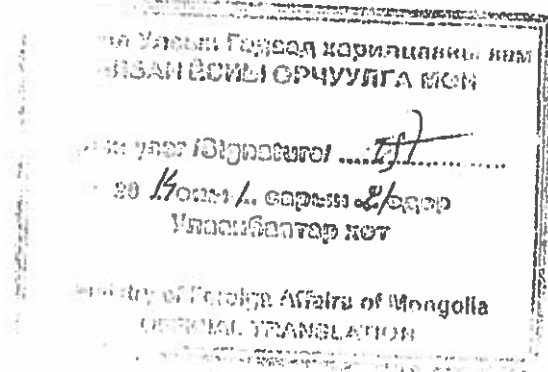 Улсын Гадаад харилцааны яам
АЛБАН ЁСНЫ ОРЧУУЛГА МӨН
үсэг /Signature/
20 оны 1. сарын 21 өдөр
Улаанбаатар хот
Ministry of Foreign Affairs of Mongolia
OFFICIAL TRANSLATION